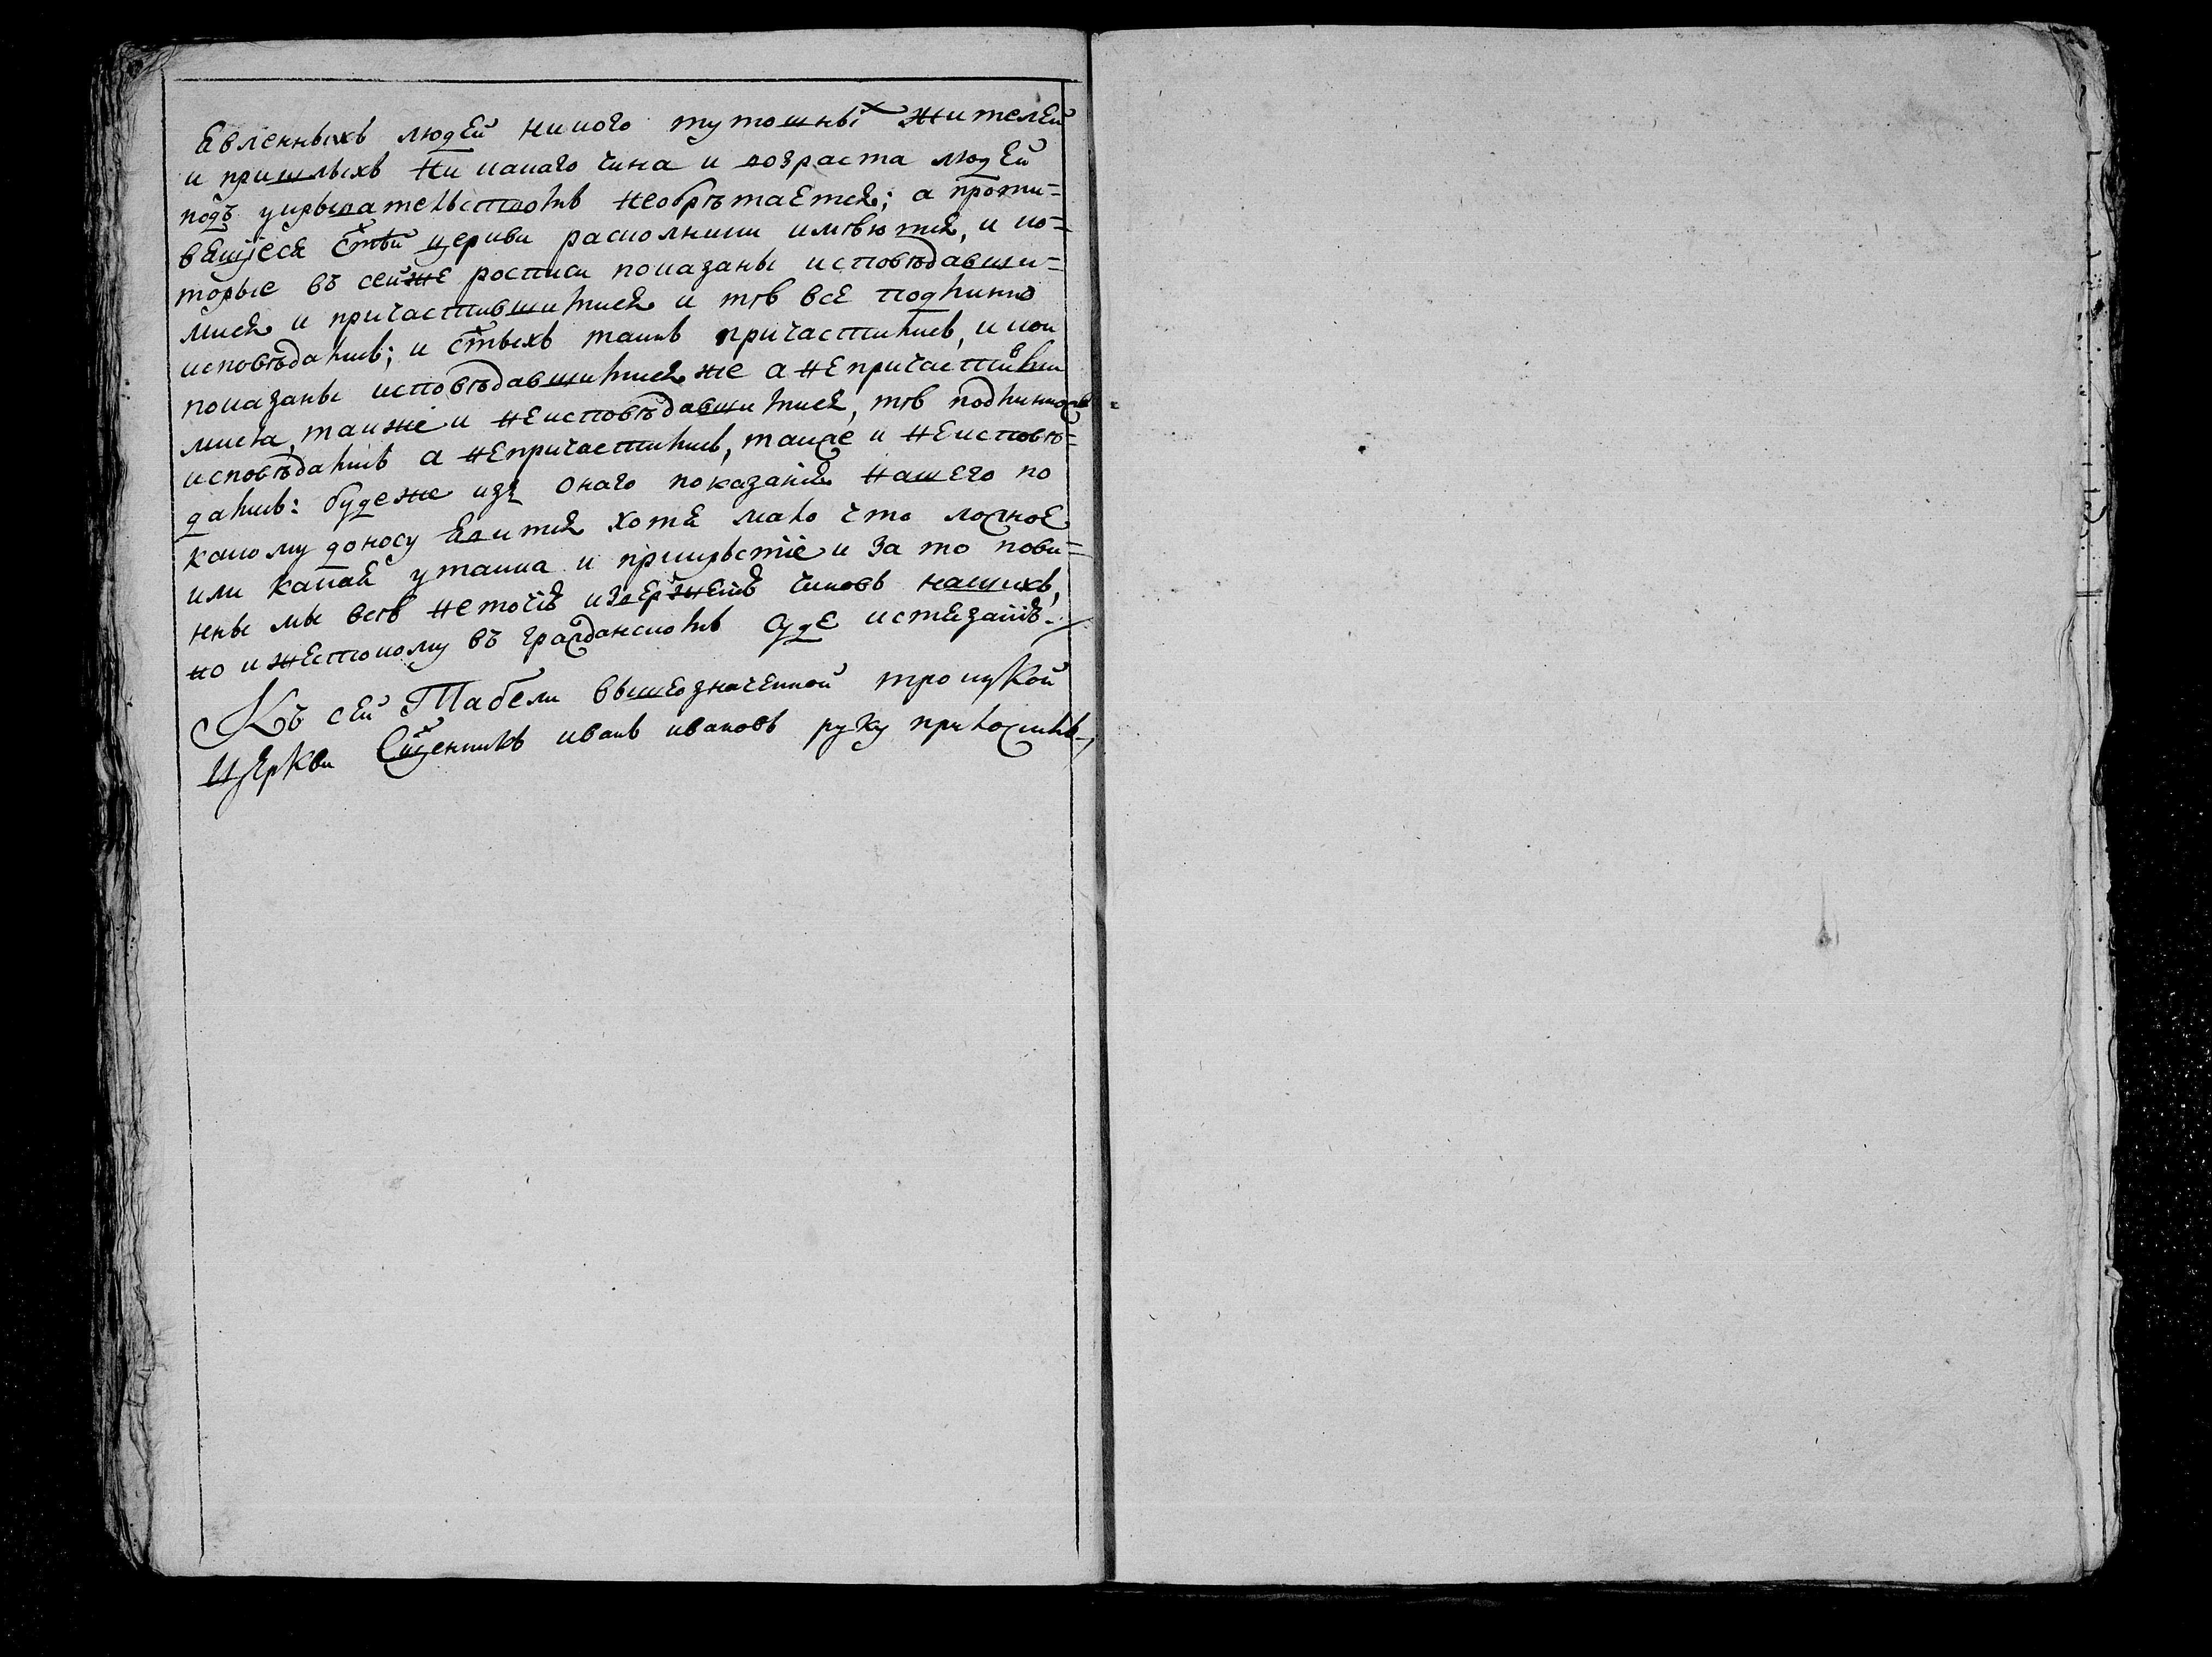 явленныхъ людей никого тутошныхъ жителей
и пришлыхъ ни какаго чина и возраста людей
подъ укрывателствомъ необрѣтается; а проти=
вящїеся стѣй церкви раскольники имѣются, и ко=
торые въ сейже росписи показаны исповѣдавши=
мися и причастившимися и тѣ все подлинно
исповѣдались; и стыхъ таинъ причастились, и кои
показаны исповѣдавшимися же а непричастивши
мися, такжě и неисповѣдавшимися, тѣ подлинно
исповѣдались а непричастились, также и неисповѣ=
дались: будеже изъ онаго показанія нашего по
какому доносу явится хотя мало что ложное
или какая утайка и прикрытїе и за то пови=
нны мы всѣ неточїю изверженїю чиновъ нашихъ,
но и жестокому въ гражданскомъ суде истязанїю.
Къ сей Табели вышеозначенной троицкой
церкви Сщенникъ иванъ ивановъ руку приложилъ